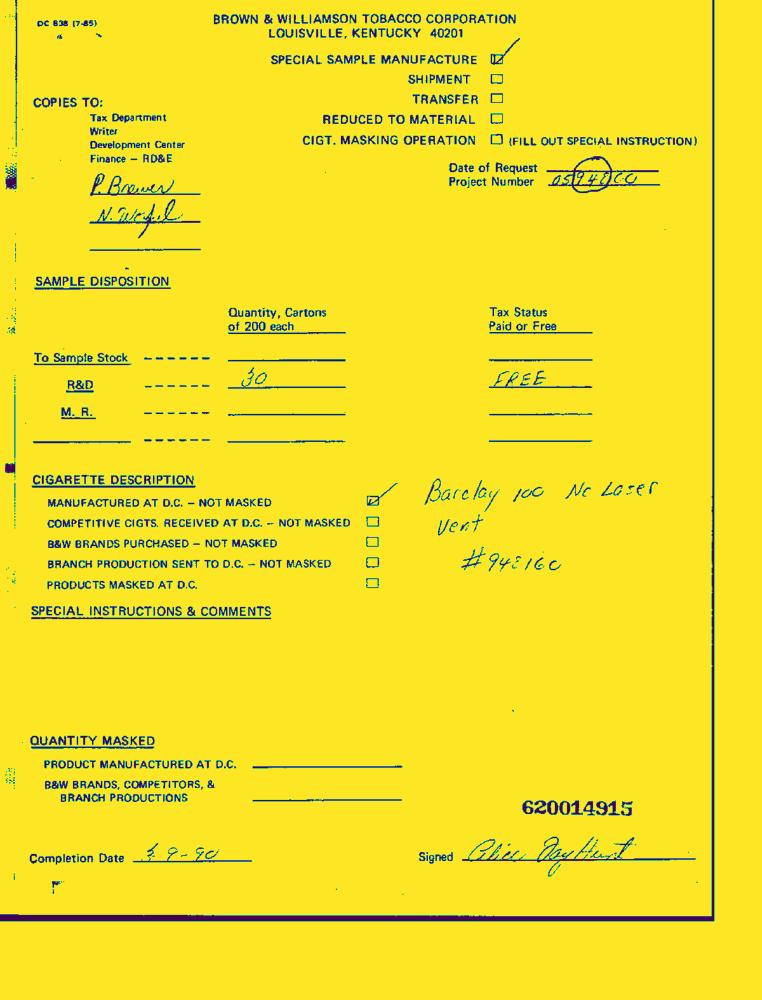 DC 838 (7-85)
BROWN & WILLIAMSON TOBACCO CORPORATION
LOUISVILLE, KENTUCKY 40201
SPECIAL SAMPLE MANUFACTURE
SHIPMENT
TRANSFER
REDUCED TO MATERIAL
CIGT. MASKING OPERATION (FILL OUT SPECIAL INSTRUCTION)
COPIES TO:
Tax Department
Writer
Development Center
Finance – RD&E
P. Brewer
N.
Date of Request
Project Number
SAMPLE DISPOSITION
Quantity, Cartons of 200 each
Tax Status Paid or Free
To Sample Stock
R&D 30 FREE
M. R.
CIGARETTE DESCRIPTION
MANUFACTURED AT D.C. – NOT MASKED
COMPETITIVE CIGTS. RECEIVED AT D.C. – NOT MASKED
B&W BRANDS PURCHASED – NOT MASKED
BRANCH PRODUCTION SENT TO D.C. – NOT MASKED
PRODUCTS MASKED AT D.C.
Barclay 100 No Laser
Vent
#948160
SPECIAL INSTRUCTIONS & COMMENTS
QUANTITY MASKED
PRODUCT MANUFACTURED AT D.C.
B&W BRANDS, COMPETITORS, &
BRANCH PRODUCTIONS
620014915
Completion Date
Signed